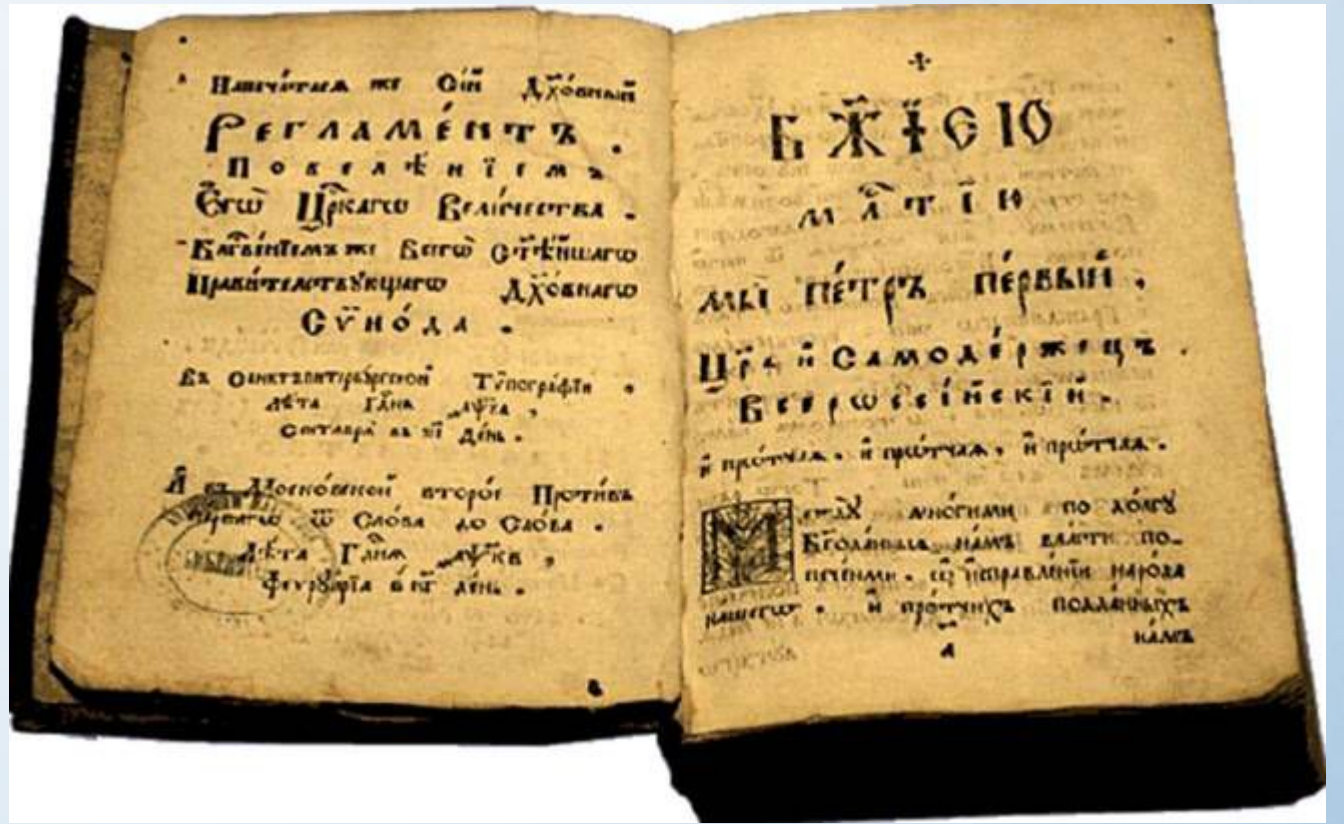 Напеча́таѧ же Сі́й Дх҃о́вный
Регла́ментъ .
Повелѣ́нїемъ
Е҆гѡ̀ Цр҃кагѡ Вели́чества .
Бл҃гве́нїемъ же Всегѡ̀ Ст҃ѣ́йшагѡ
Прави́телствꙋющагѡ Дх҃о́внагѡ
Сѷно́да .
Въ Санктъпитербꙋ́ргской Тѷпогра́фїи ,
лѣ́та гд҃нѧ ,
Сентабра̀ въ де́нь .
И҆ въ Моско́вской второ́е Проти́въ
пе́рвагѡ ѿ Сло́ва до Сло́ва .
Лѣ́та Гд҃нѧ ҂аѱкв ,
феврꙋа́рїа въ кг де́нь .
в
Бж҃їею
мл҃тїю
мы̀ пе́тръ пе́рвый .
Цр҃ь и҆ Самоде́ржецъ
Всерѡссі́йскїй .
и҆ прѡ́тчаѧ . и҆ прѡ́тчаѧ , и҆ прѡ́тчаѧ .
Между̀ мно́гими по до́лгꙋ
Бг҃ода́нныѧ на́мъ вла́сти по-
пече́нми . ѡ҆ и҆справле́нїи наро́да
на́шегѡ . и҆ про́тчихъ по́дданныхъ
а
на́мъ